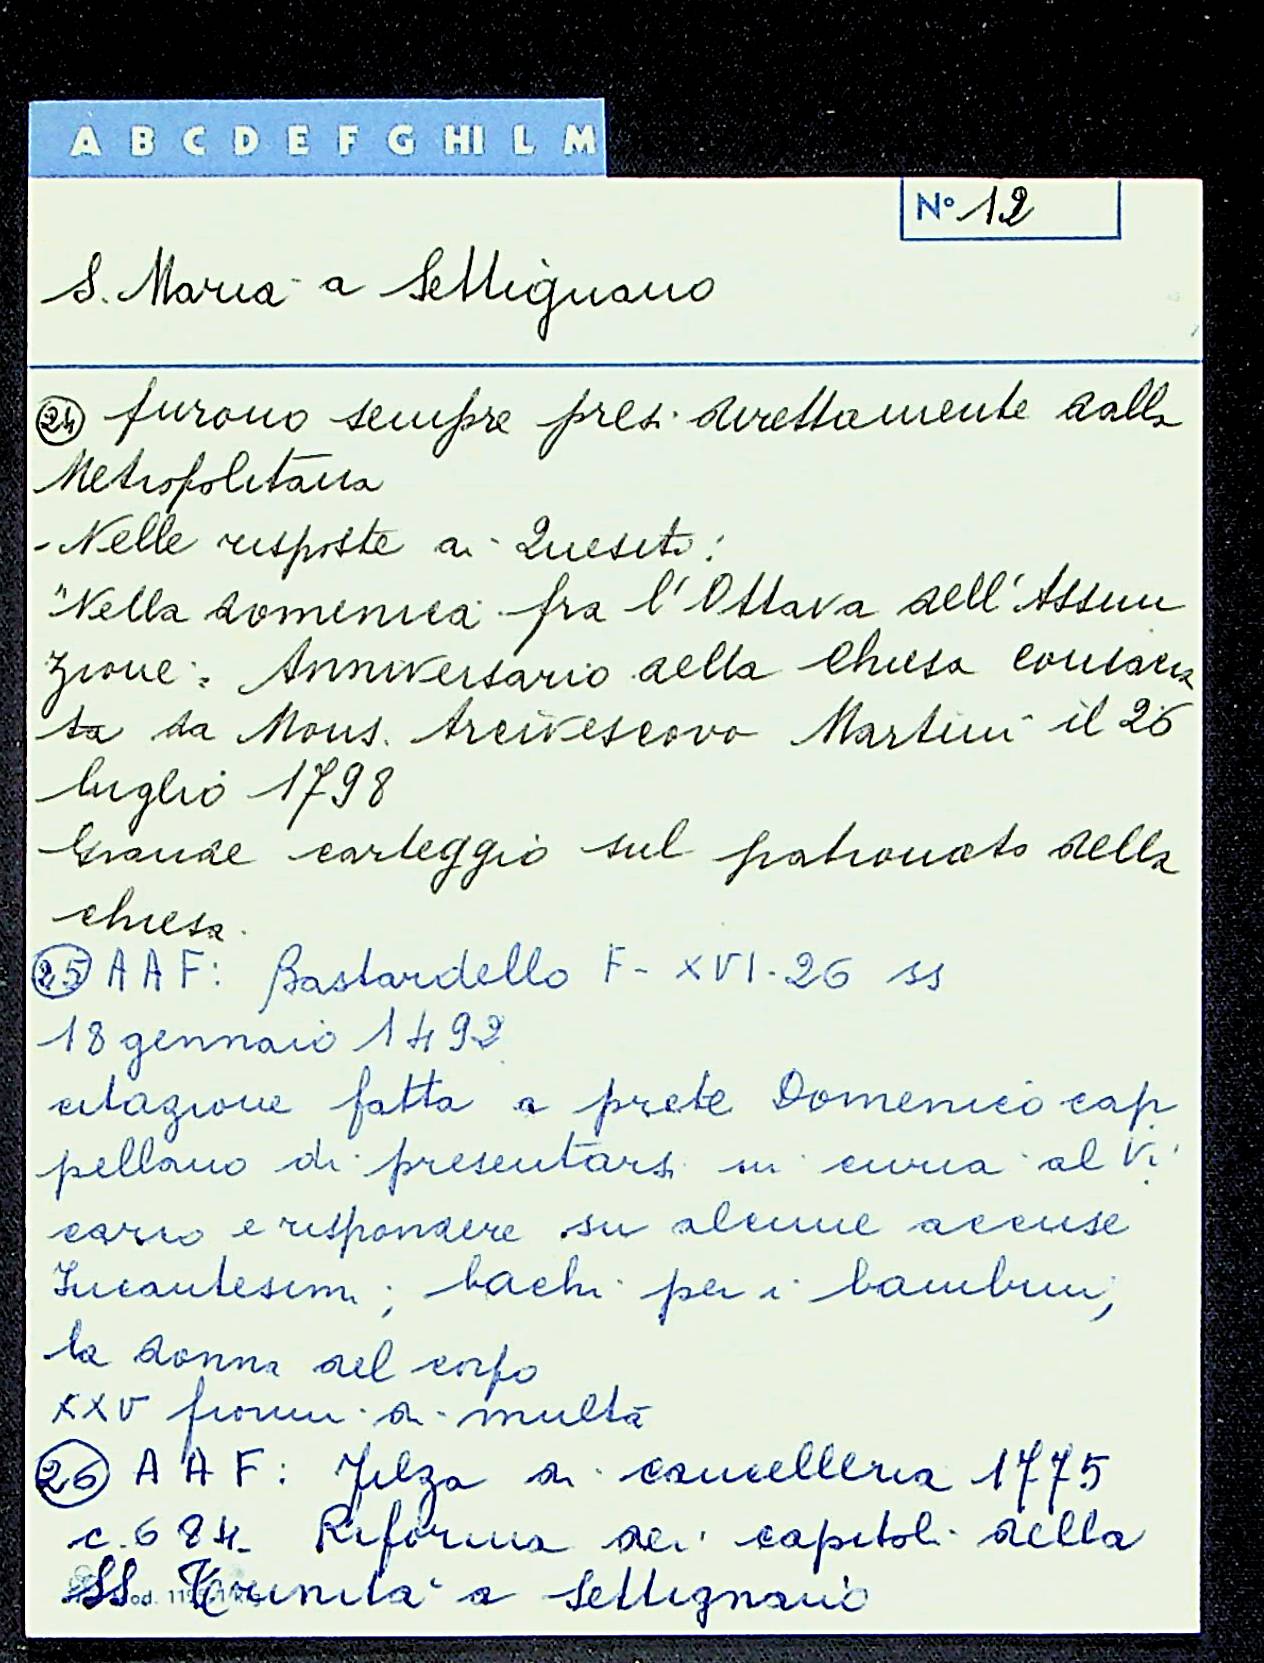 A B C D E F G HI L M
N° 12
S. Maria a Settignano
24 furono sempre presi direttamente dalla
Metropolitana
- Nelle risposte ai Quesiti:
"Nella domenica fra l'Ottava dell'Assun
zione: Anniversario della Chiesa consacra
ta da Mons. Arcivescovo Martini il 26
luglio 1798
Grande carteggio sul patronato della
chiesa.
25 A A F: Bastardello F - XVI - 26 ss
18 gennaio 1492
citazione fatta a prete Domenico cap
pellano di presentarsi in curia al Vi
cario e rispondere su alcune accuse
Incantesimi; bachi per i bambini;
la donna del corpo
XXV fiorini di multa
26 A A F: Filza di cancelleria 1775
c. 684. Riforma dei capitoli della
SS. Trinità a Settignano